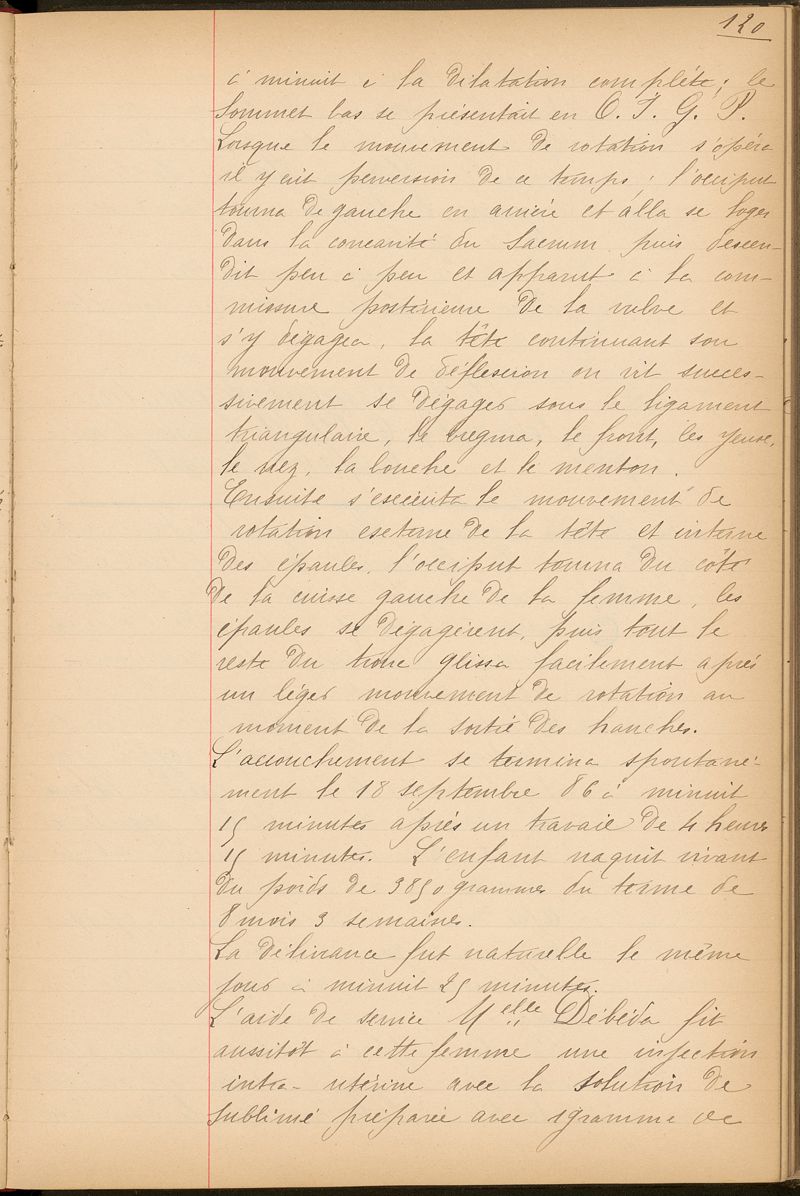 120
à minuit à la dilatation complète ; le
sommet bas se présentait en O. I. G. P.
Lorsque le mouvement de rotation s'opéra
il y eut perversion de ce temps ; l'occiput
tourna de gauche en arrière et alla se loger
dans la concavité du sacrum puis descen-
dit peu à peu et apparut à la com-
missure postérieure de la vulve et
s'y dégagea, la tête continuant son
mouvement de déflescion on vit succes-
sivement se dégager sous le ligament
triangulaire, le bregma, le front, les yeuse,
le nez, la bouche et le menton.
Ensuite s'esecuta le mouvement de
rotation eseterne de la tête et interne
des épaules, l'occiput tourna du côté
de la cuisse gauche de la femme, les
épaules se dégagèrent, puis tout le
reste du tronc glissa facilement après
un léger mouvement de rotation au
moment de la sortie des hanches.
L'accouchement se termina spontané-
ment le 18 septembre 86 à minuit
15 minutes après un travail de 4 heures
15 minutes. L'enfant naquit vivant
du poids de 3850 grammes du terme de
8 mois 3 semaines.
La délivrance fut naturelle le même
jour à minuit 25 minutes.
L'aide de service Melle Débéda fit
aussitôt à cette femme une injection
intra-utérine avec la solution de
sublimé préparée avec 1 gramme de